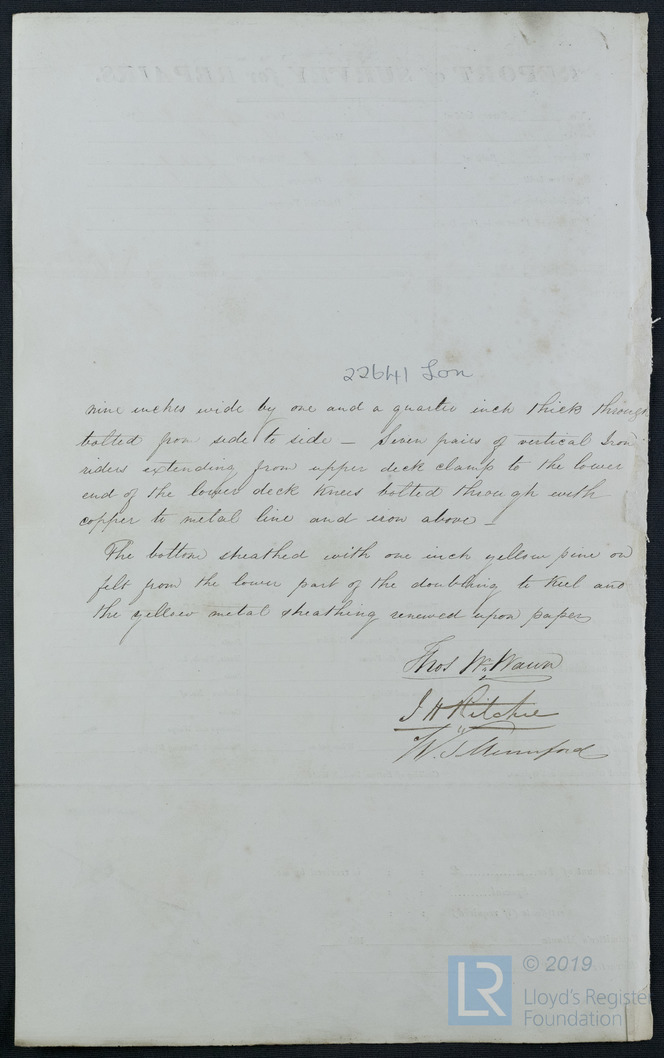 REPORT of SURVEY for REPAIRS.
22641 Lon
nine inches wide by one and a quarter inch thick through
bolted from side to side — Seven pairs of vertical Iron
riders extending from upper deck clamp to the lower
end of the lower deck knees bolted through with
copper to metal line and iron above —
The bottom sheathed with one inch yellow pine on
felt from the lower part of the doubling to keel and
the yellow metal sheathing renewed upon paper
Thos Wm Wawn
J H Ritchie
W. J. Mumford
LR © 2019
Lloyd's Register
Foundation